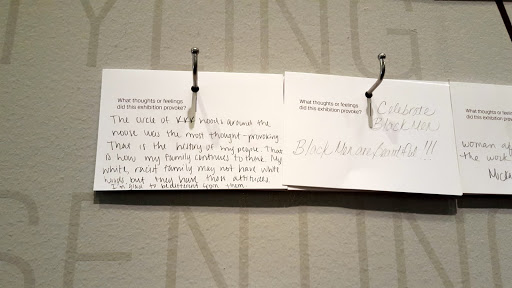 TYING
What thoughts or feelings
did this exhibition provoke?
The circle of KKK hoods around the
noose was the most thought-provoking.
That is the history of my people. That
is how my family continues to think. My
white, racist family may not have white
hoods but they have their attitudes.
I'm glad to be different from them.
What thoughts or feelings
did this exhibition provoke?
Celebrate
Black Men
Black Men are Beautiful!!!
What thoughts or feelings
did this exhibition provoke?
woman
the work
SENTIN